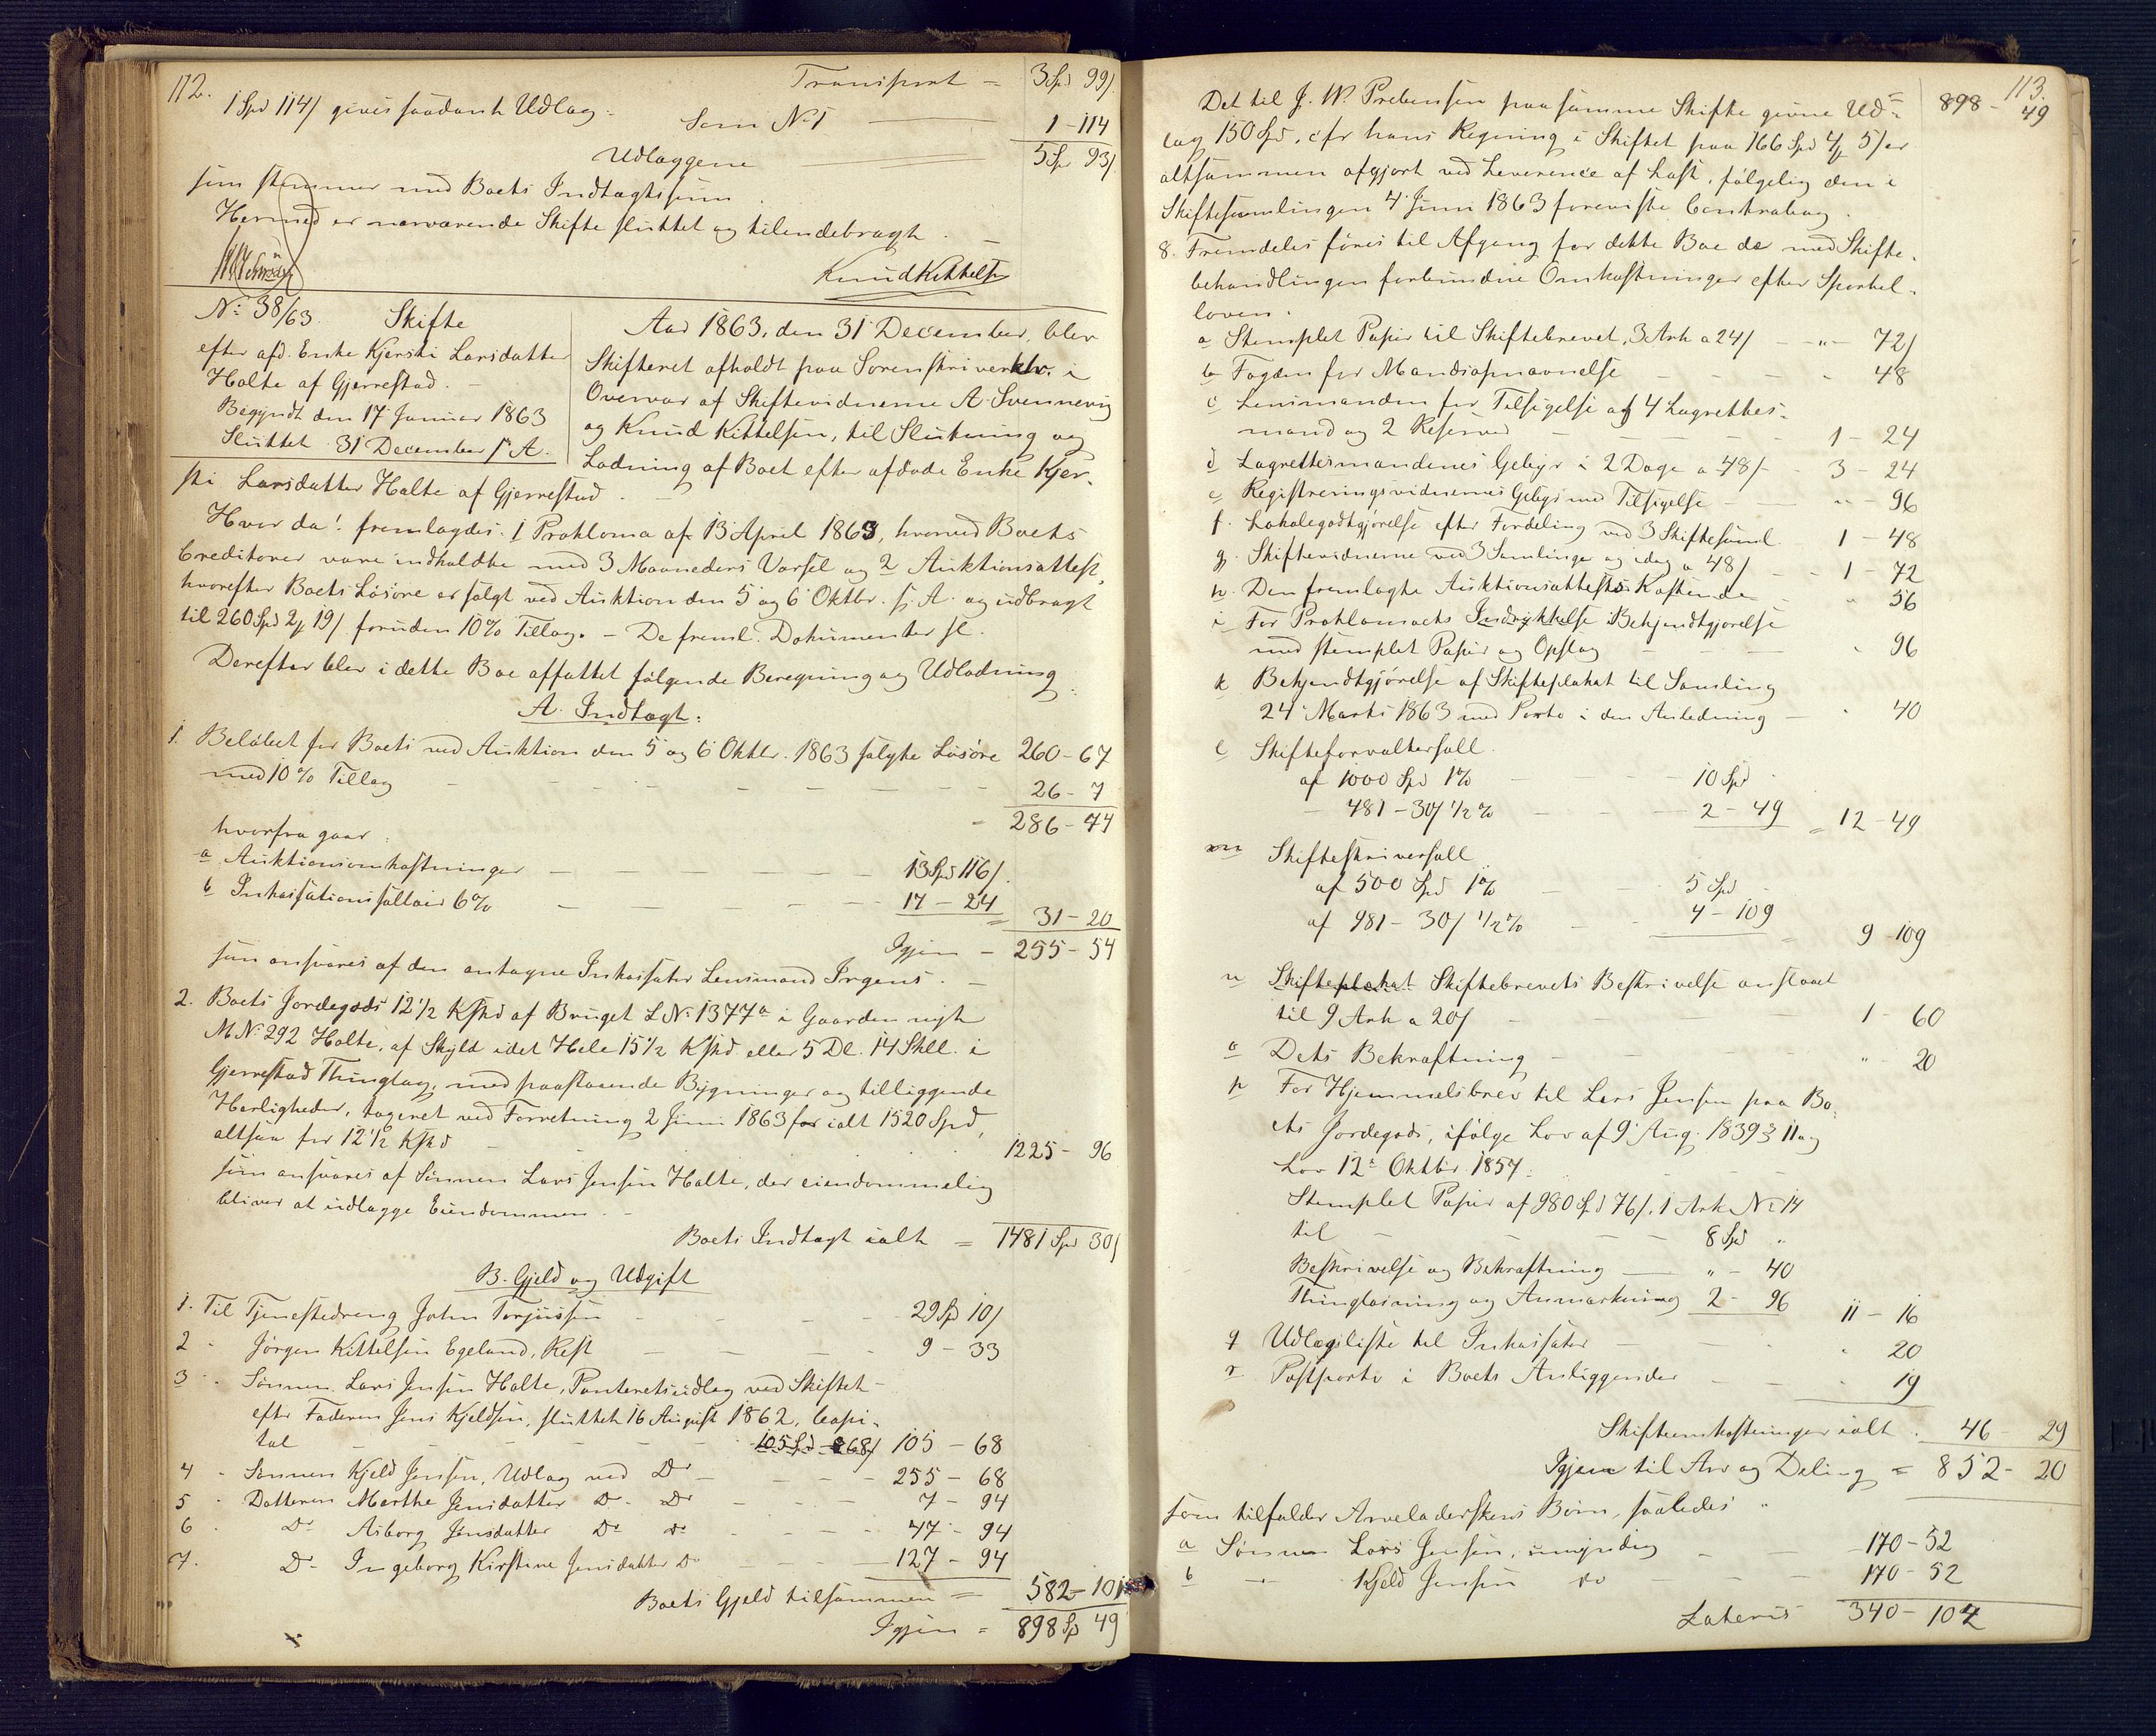 112.
Transport = 3 Spd 99/
1 Spd 114/ gives saadant Udlæg:
Som No 1 1 - 114
Udlæggene 5 Sp 93/
som stemmer med Boets Indtægtssum.
Hermed er nærværende Skifte sluttet og tilendebragt.
Knud Kittelsen
No 38/63. Skifte
efter afd. Enke Kjersti Larsdatter
Holte af Gjerrestad. -
Begyndt den 17 Januar 1863
Sluttet 31 December s. A.
Aar 1863, den 31 December, blev
Skifteret afholdt paa Sorenskriverktr. i
Overvær af Skiftevidnerne A. Svennevig
og Knud Kittelsen, til Slutning og
Lodning af Boet efter afdøde Enke Kjer-
sti Larsdatter Holte af Gjerrestad. -
Hvor da! fremlagdes: 1 Proklama af 13 April 1863, hvorved Boets
Creditorer vare indkaldte med 3 Maaneders Varsel og 2 Auktionsattest,
hvorefter Boets Løsøre er solgt ved Auktion den 5 og 6 Oktbr. s. A. og udbragt
til 260 Spd 2 19/ foruden 10% Tillæg. - De freml. Dokumenter fl.
Derefter blev i dette Boe affattet følgende Beregning og Udlodning:
A. Indtægt:
1. Beløbet for Boets ved Auktion den 5 og 6 Oktbr. 1863 solgte Løsøre 260 - 67
med 10% Tillæg - 26 - 7
= 286 - 74
hvorfra gaar:
a Auktionsomkostninger - 13 Spd 116/.
b Inkassationssallair 6% - 17 - 24 = 31 - 20
Igjen - 255 - 54
som ansvares af den antagne Inkassator Lensmand Irgens. -
2. Boets Jordegods 12 1/2 Kskd af Bruget L No 1377a i Gaarden nyt
M No 292 Holte, af Skyld i det Hele 15 1/2 Kskd eller 5 Dl. 14 Skll. i
Gjerrestad Thinglag, med paastaaende Bygninger og tilliggende
Herligheder, taxeret ved Forretning 2 Juni 1863 for ialt 1520 Spd,
altsaa for 12 1/2 Kskd - 1225 - 96
som ansvares af Sønnen Lars Jensen Holte, der eiendommelig
bliver at udlægge Eiendommen. -
Boets Indtægt ialt = 1481 Spd 30/
B. Gjeld og Udgift
1. Til Tjenestedreng John Torjussen - 29 Sp 10/
2 - Jørgen Kittelsen Egeland, Rest - 9 - 33
3 - Sønnen Lars Jensen Holte, Panteretsudlæg ved Skiftet
efter Faderen Jens Kjeldsen, sluttet 16 August 1862, Capi-
tal - 105 Spd 68/ 105 - 68
4 - Sønnen Kjeld Jensen, Udlæg ved Do - 255 - 68
5 - Datteren Marthe Jensdatter Do Do - 7 - 94
6 - Do Asborg Jensdatter Do do - 47 - 94
7. Do Ingeborg Kirstine Jensdatter Do - 127 - 94
Boets Gjeld tilsammen = 582 - 101
Igjen = 898 Sp 49
113.
Det til J. W. Prebensen paa samme Skifte givne Ud- 898 - 49
læg 150 Spd, cfr hans Regning i Skiftet paa 166 Spd 4 5/ er
altsammen afgjort ved Leverence af Last, følgelig den i
Skiftesamlingen 4 Juni 1863 foreviste Contrabog.
8. Fremdeles føres til Afgang for dette Boe de med Skifte-
behandlingen forbundne Omkostninger efter Sportel-
loven:
a Stemplet Papir til Skiftebrevet, 3 Ark a 24/ - " - 72/
b Fogden for Mandsopnævnelse - 48
c Lensmanden for Tilsigelse af 4 Lagrettes-
mænd og 2 Reserver - 1 - 24
d Lagrettesmændenes Gebyr i 2 Dage a 48/ - 3 - 24
e Registreringsvidnernes Gebyr med Tilsigelse - " - 96
f. Lokalegodtgjørelse efter Fordeling ved 3 Skiftesaml. 1 - 48
g. Skiftevidnerne ved 3 Samlinger og idag a 48/ - 1 - 72
h. Den fremlagte Auktionsattests Kostende - " 56
i For Proklamaets Indrykkelse i Bekjendtgjørelse
med stemplet Papir og Opslag - 96
k Bekjendtgjørelse af Skifteplakat til Samling
24 Marts 1863 med Porto i den Anledning - 40
l Skifteforvaltersall.
af 1000 Spd 1% - 10 Spd
- 481 - 30/ 1/2% - 2 - 49 = 12 - 49
m Skifteskriversall
af 500 Spd 1% - 5 Spd
af 981 - 30/ 1/2% - 4 - 109 = 9 - 109
n Skifteplakat Skiftebrevets Beskrivelse anslaaet
til 9 Ark a 20/ - 1 - 60
o Dets Bekræftning - " - 20
p For Hjemmelsbrev til Lars Jensen paa Bo-
ets Jordegods, ifølge Lov af 9 Aug. 1839 § 11 og
Lov 12 Oktbr 1857:
Stemplet Papir af 980 Spd 76/. 1 Ark No 14
til - 8 Spd "
Beskrivelse og Bekræftning - " - 40
Thinglæsning og Anmærkning 2 - 96 11 - 16
q Udlægsliste til Inkassator - 20
r Postporto i Boets Anliggender - 19
Skifteomkostninger ialt. 46 - 29
Igjen til Arv og Deling = 852 - 20
som tilfalder Arveladerskens Børn, saaledes:
a Sønnen Lars Jensen, umyndig - 170 - 52
b - Kjeld Jensen do - 170 - 52
Lateris 340 - 104